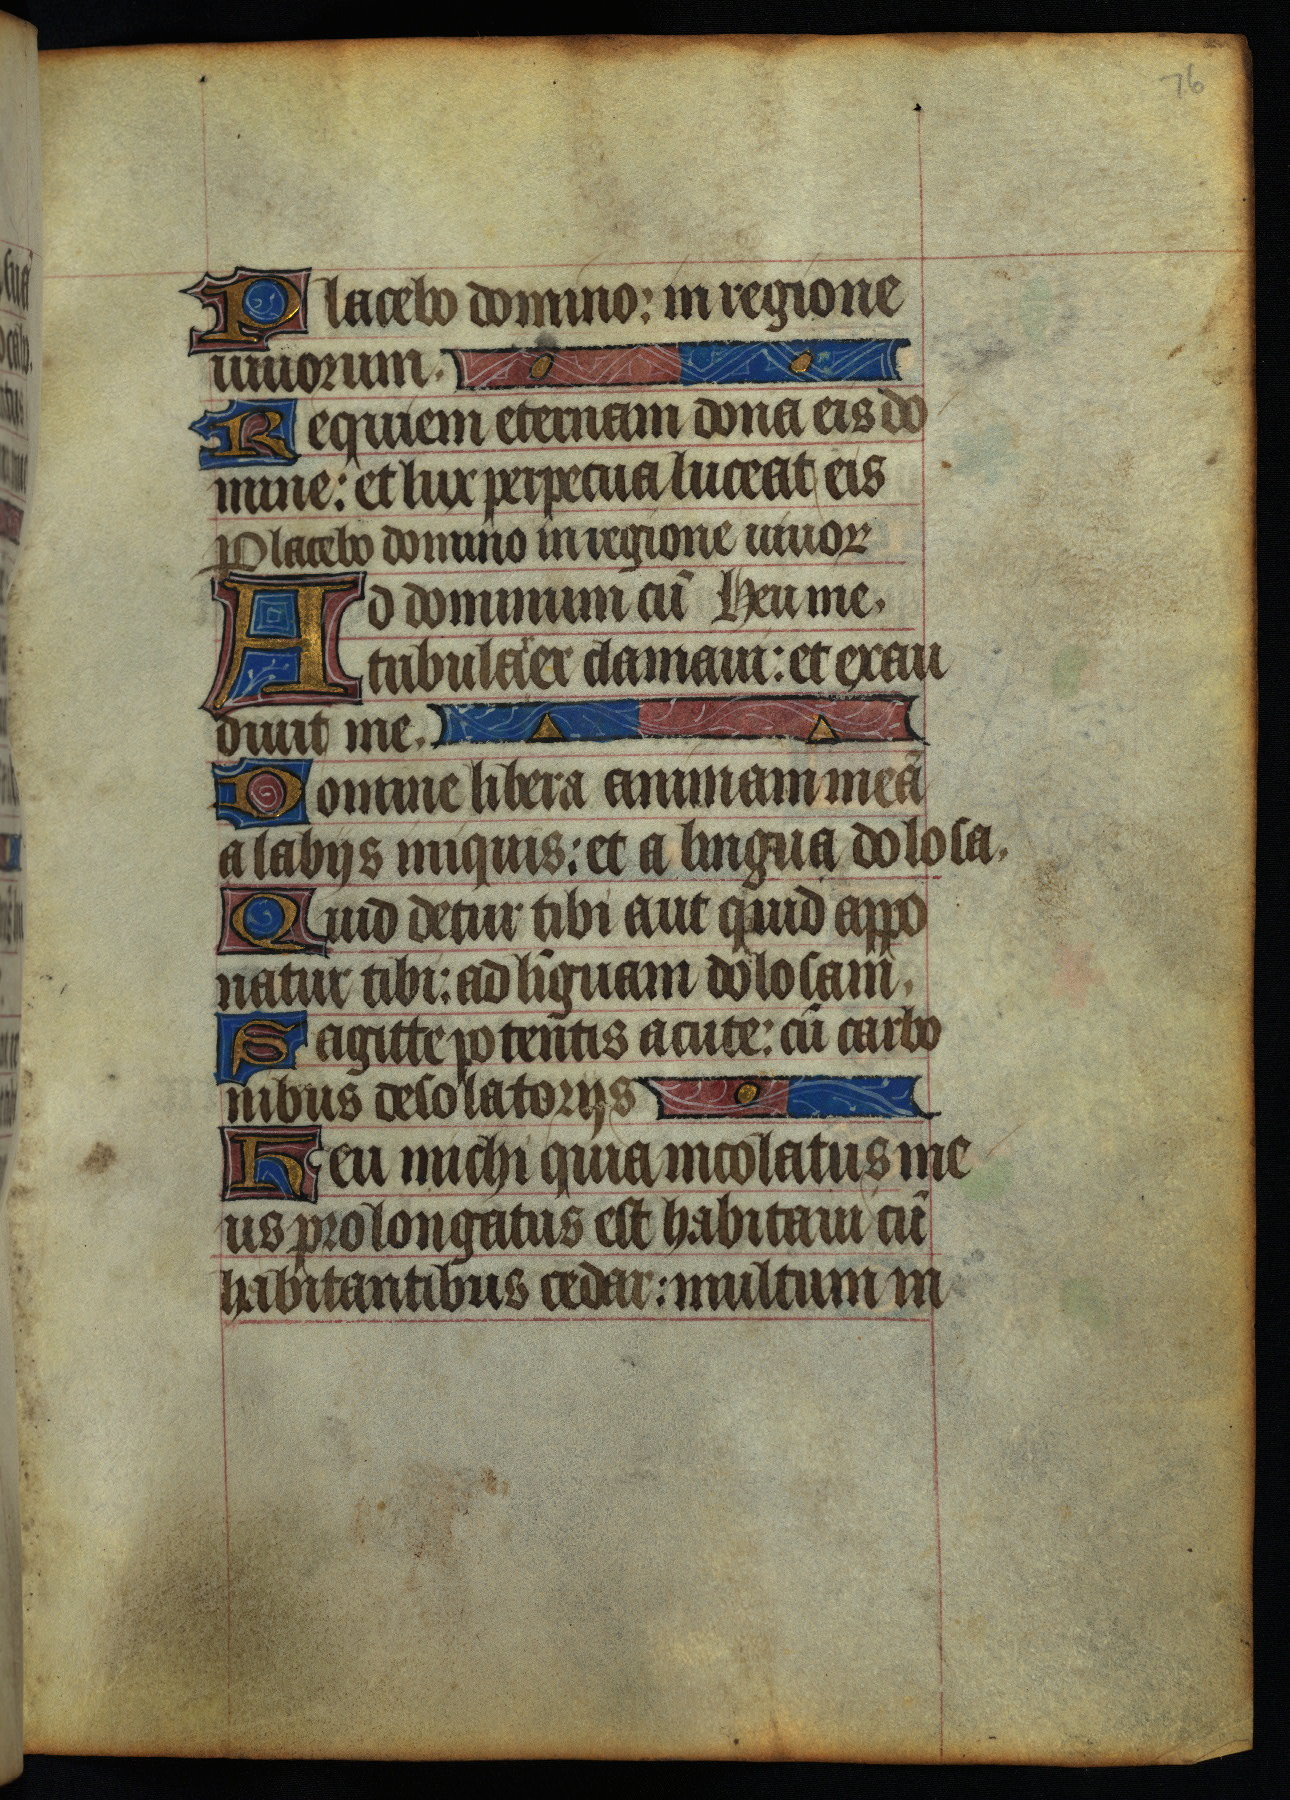 76
Placebo domino: in regione
uiuorum.
Requiem eternam dona eis do
mine: et lux perpetua luceat eis
Placebo domino in regione uiuoꝝ
Ad dominum cū Heu me.
tribulaꝛer clamaui: et exau
diuit me.
Domine libera animam meā
a labijs iniquis: et a lingua dolosa.
Quid detur tibi aut quid appo
natur tibi: ad līguam dolosam.
Sagitte potentis acute: cū carbo
nibus desolatorijs
Heu michi quia incolatus me
us prolongatus est habitaui cū
habitantibus cedar: multum in